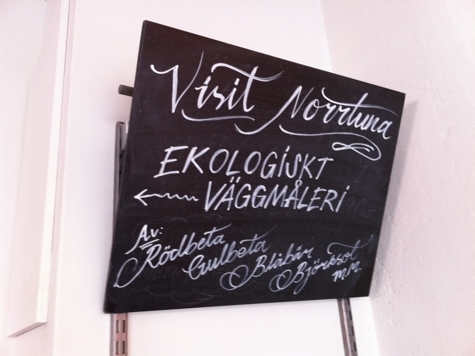 Visit Norrtuna
EKOLOGISKT
VÄGGMÅLERI
Av:
Rödbeta
Gulbeta
Blåbär
Björksot
m.m.